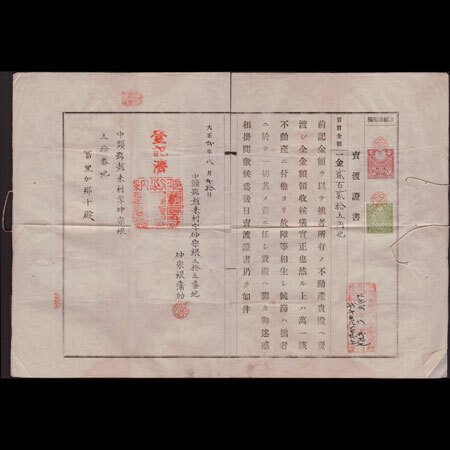 賣渡證書
賣買金額
一金貳百貳拾五円也
前記金額ヲ以テ拙者所有ノ不動産貴殿ヘ賣
渡シ全金額領收候儀實正也然ル上ハ萬一該
不動産ニ付他ヨリ故障等相生シ候節ハ拙者
ニ於テ一切其ノ責ニ任シ貴殿ヘ聊カ御迷惑
相掛間敷候爲後日賣渡證書仍テ如件
大正 年八月 拾日
中頭郡越来村字仲宗根五拾五番地
仲宗根蒲助
登記濟
中頭郡越来村字仲宗根
五拾番地
冨里加那 殿